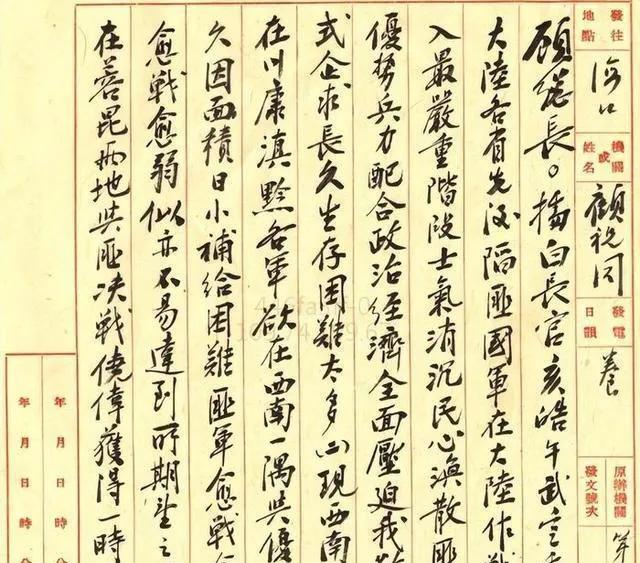 發往地點
海口
機關或姓名
顧祝同
發電日韻
養
原辦機關發文號次
顧總長。據白長官亥皓午武
大陸各省先後陷匪國軍在大陸作戰
入最嚴重階段士氣消沉民心渙散匪
優勢兵力配合政治經濟全面壓迫我
式企求長久生存困難太多㈡現西南
在川康滇黔各軍欲在西南一隅與優
久因面積日小補給困難匪軍愈戰
愈戰愈弱似亦不易達到所期望之
在蓉昆兩地與匪決戰僥倖獲得一時
年月日時
年月日時